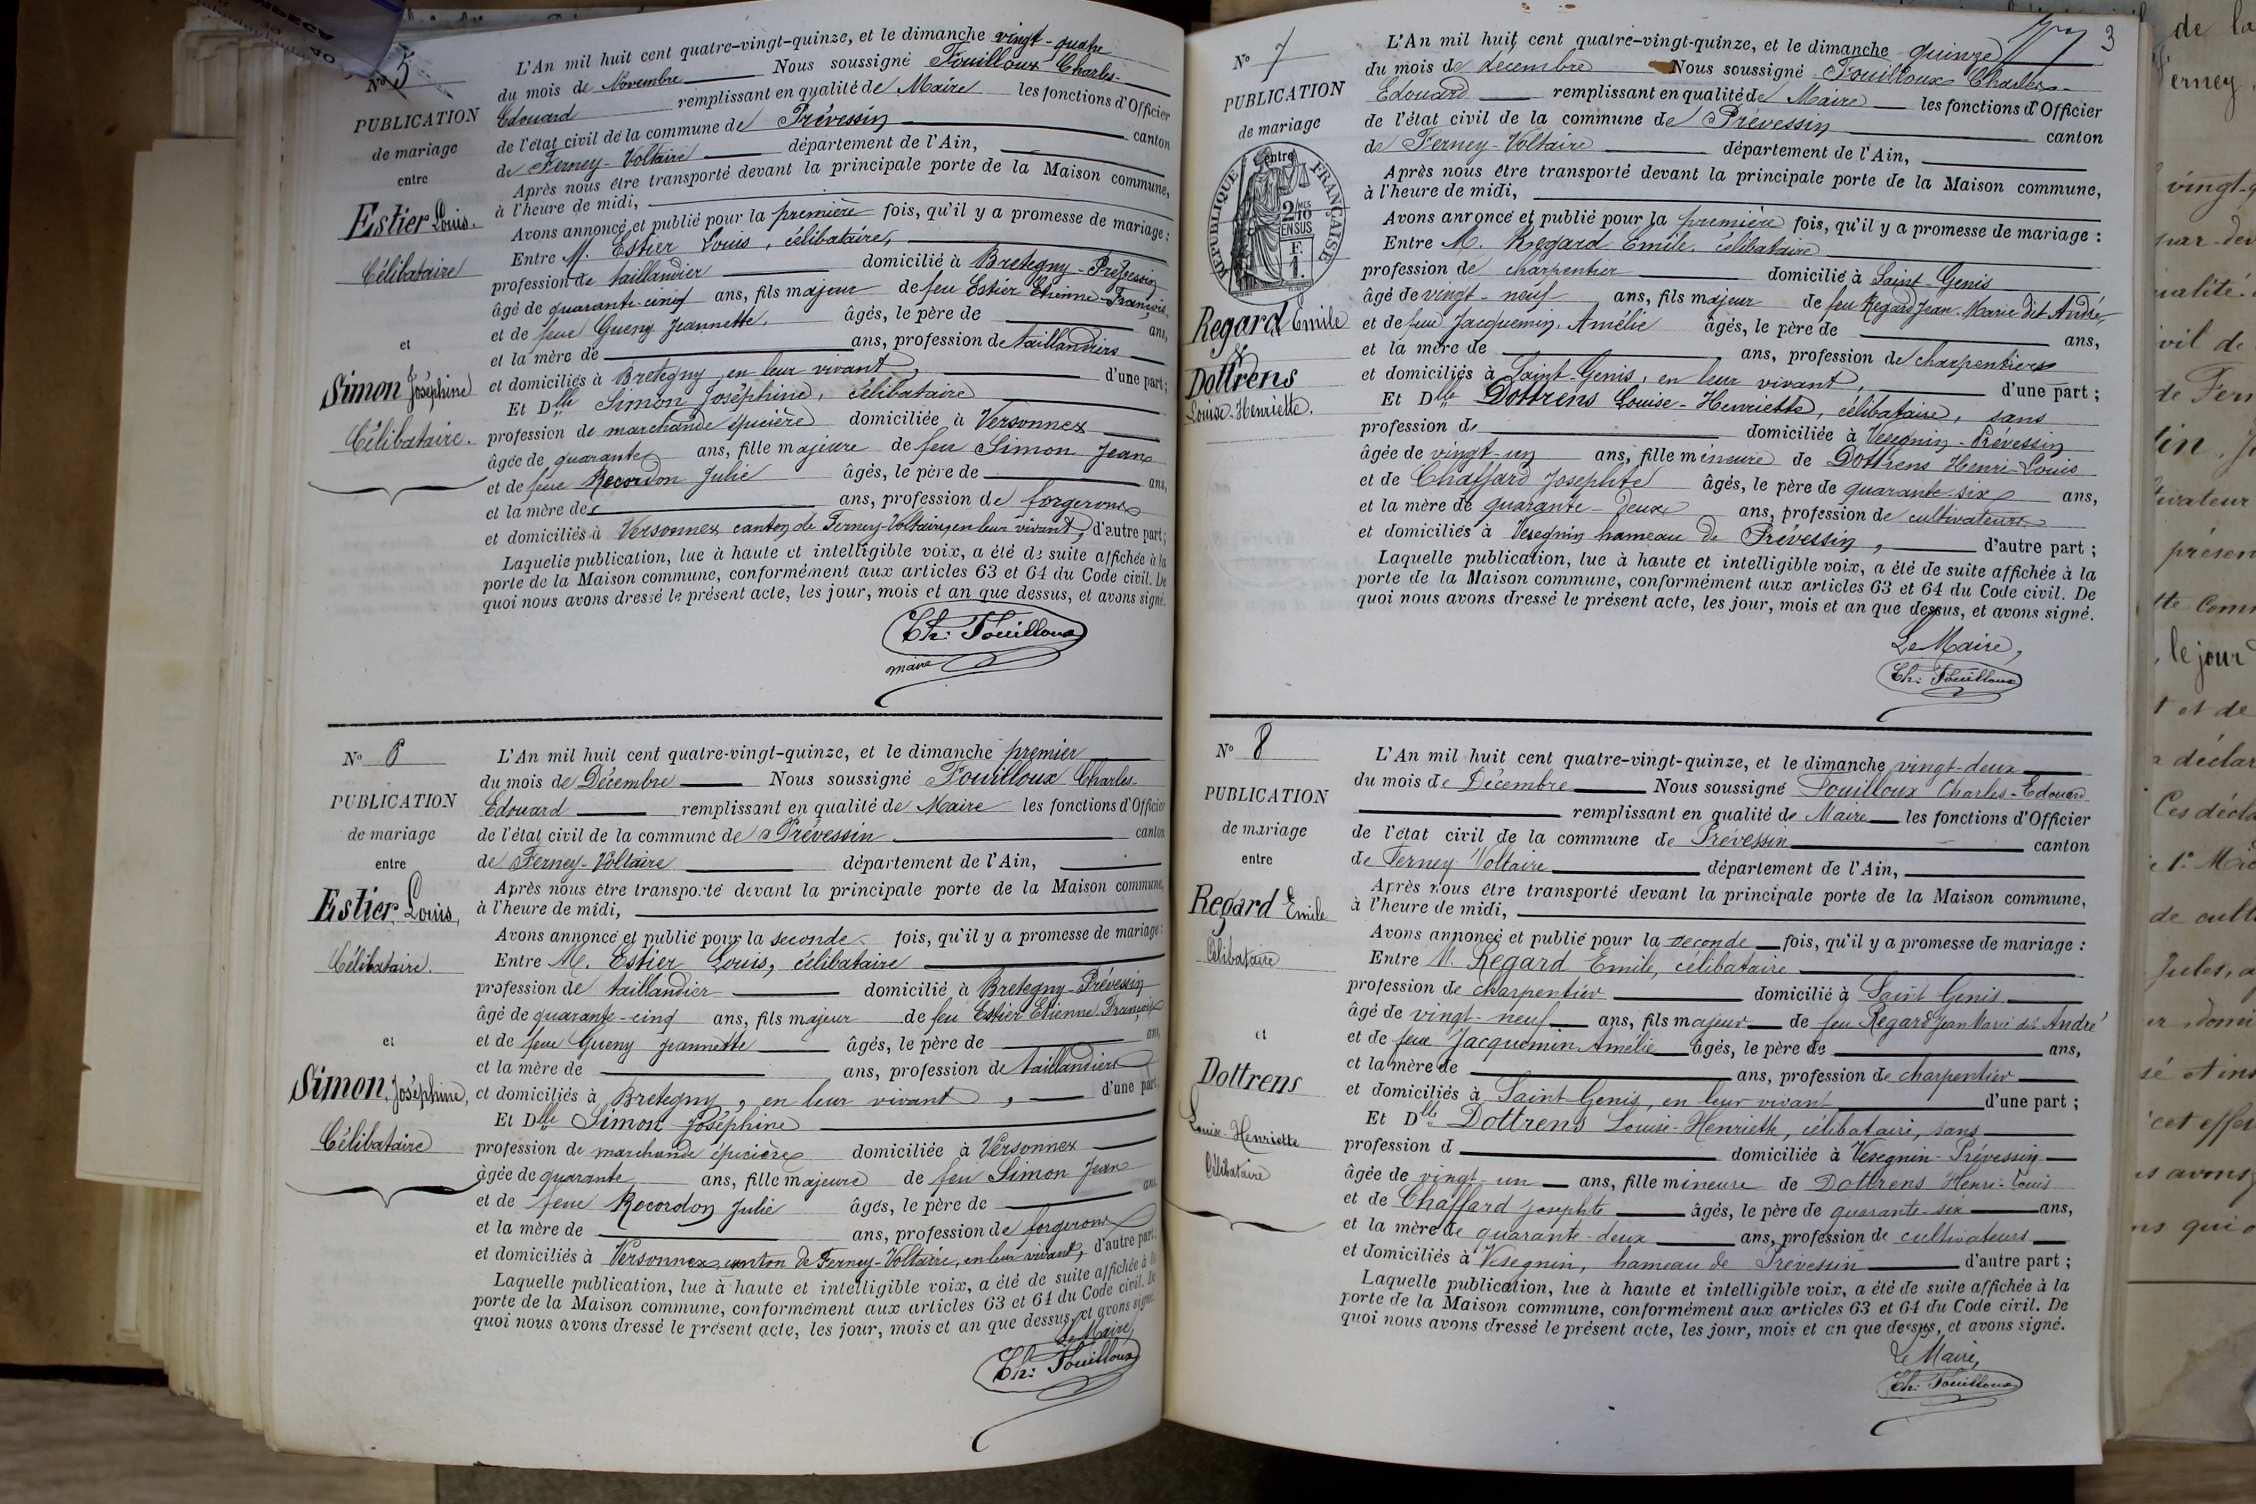 No 5
PUBLICATION
de mariage
entre
Estier Louis.
Célibataire
et
Simon Joséphine
Célibataire.
L'An mil huit cent quatre-vingt-quinze, et le dimanche vingt-quatre
du mois de Novembre Nous soussigné Fouilloux Charles-
Edouard remplissant en qualité de Maire les fonctions d'Officier
de l'état civil de la commune de Prévessin canton
de Ferney-Voltaire département de l'Ain,
Après nous être transporté devant la principale porte de la Maison commune,
à l'heure de midi,
Avons annoncé et publié pour la première fois, qu'il y a promesse de mariage :
Entre M. Estier Louis, célibataire,
profession de taillandier domicilié à Bretegny-Prévessin
âgé de quarante-cinq ans, fils majeur de feu Estier Etienne-François
et de feue Gueny Jeannette, âgés, le père de ans,
et la mère de ans, profession de taillandiers
et domiciliés à Bretegny, en leur vivant, d'une part ;
Et Dlle Simon Joséphine, célibataire
profession de marchande épicière domiciliée à Versonnex
âgée de quarante ans, fille majeure de feu Simon Jean
et de feue Recordon Julie âgés, le père de ans,
et la mère de ans, profession de forgerons
et domiciliés à Versonnex canton de Ferney-Voltaire, en leur vivant, d'autre part ;
Laquelle publication, lue à haute et intelligible voix, a été de suite affichée à la
porte de la Maison commune, conformément aux articles 63 et 64 du Code civil. De
quoi nous avons dressé le présent acte, les jour, mois et an que dessus, et avons signé.
Ch: Fouilloux
maire
No 6
PUBLICATION
de mariage
entre
Estier Louis,
Célibataire.
et
Simon, Joséphine,
Célibataire
L'An mil huit cent quatre-vingt-quinze, et le dimanche premier
du mois de Décembre Nous soussigné Fouilloux Charles-
Edouard remplissant en qualité de Maire les fonctions d'Officier
de l'état civil de la commune de Prévessin canton
de Ferney-Voltaire département de l'Ain,
Après nous être transporté devant la principale porte de la Maison commune,
à l'heure de midi,
Avons annoncé et publié pour la seconde fois, qu'il y a promesse de mariage :
Entre M. Estier Louis, célibataire
profession de taillandier domicilié à Bretegny-Prévessin
âgé de quarante-cinq ans, fils majeur de feu Estier Etienne-François
et de feue Gueny Jeannette âgés, le père de ans,
et la mère de ans, profession de taillandiers
et domiciliés à Bretegny, en leur vivant, d'une part
Et Dlle Simon Joséphine
profession de marchande épicière domiciliée à Versonnex
âgée de quarante ans, fille majeure de feu Simon Jean
et de feue Recordon Julie âgés, le père de ans,
et la mère de ans, profession de forgerons
et domiciliés à Versonnex, canton de Ferney-Voltaire, en leur vivant, d'autre part.
Laquelle publication, lue à haute et intelligible voix, a été de suite affichée à la
porte de la Maison commune, conformément aux articles 63 et 64 du Code civil. De
quoi nous avons dressé le présent acte, les jour, mois et an que dessus, et avons signé.
Le Maire,
Ch: Fouilloux
3
No 7
PUBLICATION
de mariage
entre
RÉPUBLIQUE FRANÇAISE
2/10 MES
EN SUS
F.
1.
Regard Emile
&
Dottrens
Louise-Henriette.
L'An mil huit cent quatre-vingt-quinze, et le dimanche quinze
du mois de décembre Nous soussigné Fouilloux Charles-
Edouard remplissant en qualité de Maire les fonctions d'Officier
de l'état civil de la commune de Prévessin canton
de Ferney-Voltaire département de l'Ain,
Après nous être transporté devant la principale porte de la Maison commune,
à l'heure de midi,
Avons annoncé et publié pour la première fois, qu'il y a promesse de mariage :
Entre M. Regard Emile, célibataire
profession de charpentier domicilié à Saint-Genis
âgé de vingt-neuf ans, fils majeur de feu Regard Jean-Marie dit André,
et de feue Jacquemin, Amélie âgés, le père de ans,
et la mère de ans, profession de charpentiers
et domiciliés à Saint-Genis, en leur vivant, d'une part ;
Et Dlle Dottrens Louise-Henriette, célibataire, sans
profession de domiciliée à Vésegnin-Prévessin
âgée de vingt-un ans, fille mineure de Dottrens Henri-Louis
et de Chaffard Josephte âgés, le père de quarante-six ans,
et la mère de quarante-deux ans, profession de cultivateurs
et domiciliés à Vésegnin hameau de Prévessin, d'autre part ;
Laquelle publication, lue à haute et intelligible voix, a été de suite affichée à la
porte de la Maison commune, conformément aux articles 63 et 64 du Code civil. De
quoi nous avons dressé le présent acte, les jour, mois et an que dessus, et avons signé.
Le Maire,
Ch: Fouilloux
No 8
PUBLICATION
de mariage
entre
Regard Emile
Célibataire
et
Dottrens
Louise-Henriette
Célibataire
L'An mil huit cent quatre-vingt-quinze, et le dimanche vingt-deux
du mois de Décembre Nous soussigné Fouilloux Charles-Edouard
remplissant en qualité de Maire les fonctions d'Officier
de l'état civil de la commune de Prévessin canton
de Ferney-Voltaire département de l'Ain,
Après nous être transporté devant la principale porte de la Maison commune,
à l'heure de midi,
Avons annoncé et publié pour la seconde fois, qu'il y a promesse de mariage :
Entre M. Regard Emile, célibataire
profession de charpentier domicilié à Saint Genis
âgé de vingt-neuf ans, fils majeur de feu Regard Jean Marie dit André
et de feue Jacquemin Amélie âgés, le père de ans,
et la mère de ans, profession de charpentier
et domiciliés à Saint Genis, en leur vivant d'une part ;
Et Dlle Dottrens Louise-Henriette, célibataire, sans
profession d domiciliée à Vesegnin-Prévessin
âgée de vingt-un ans, fille mineure de Dottrens Henri-Louis
et de Chaffard Josephte âgés, le père de quarante-six ans,
et la mère de quarante-deux ans, profession de cultivateurs
et domiciliés à Vesegnin, hameau de Prévessin d'autre part ;
Laquelle publication, lue à haute et intelligible voix, a été de suite affichée à la
porte de la Maison commune, conformément aux articles 63 et 64 du Code civil. De
quoi nous avons dressé le présent acte, les jour, mois et an que dessus, et avons signé.
Le Maire,
Ch: Fouilloux